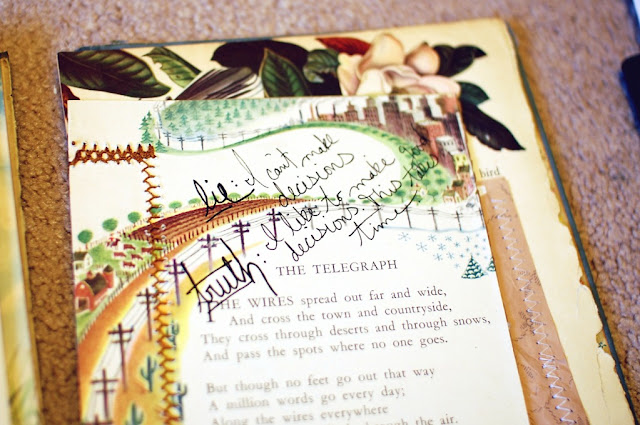 lie: I can't make
decisions.
truth: I like to make good
decisions, this takes
time.
bird
THE TELEGRAPH
THE WIRES spread out far and wide,
And cross the town and countryside,
They cross through deserts and through snows,
And pass the spots where no one goes.
But though no feet go out that way
A million words go every day;
Along the wires everywhere
through the air.